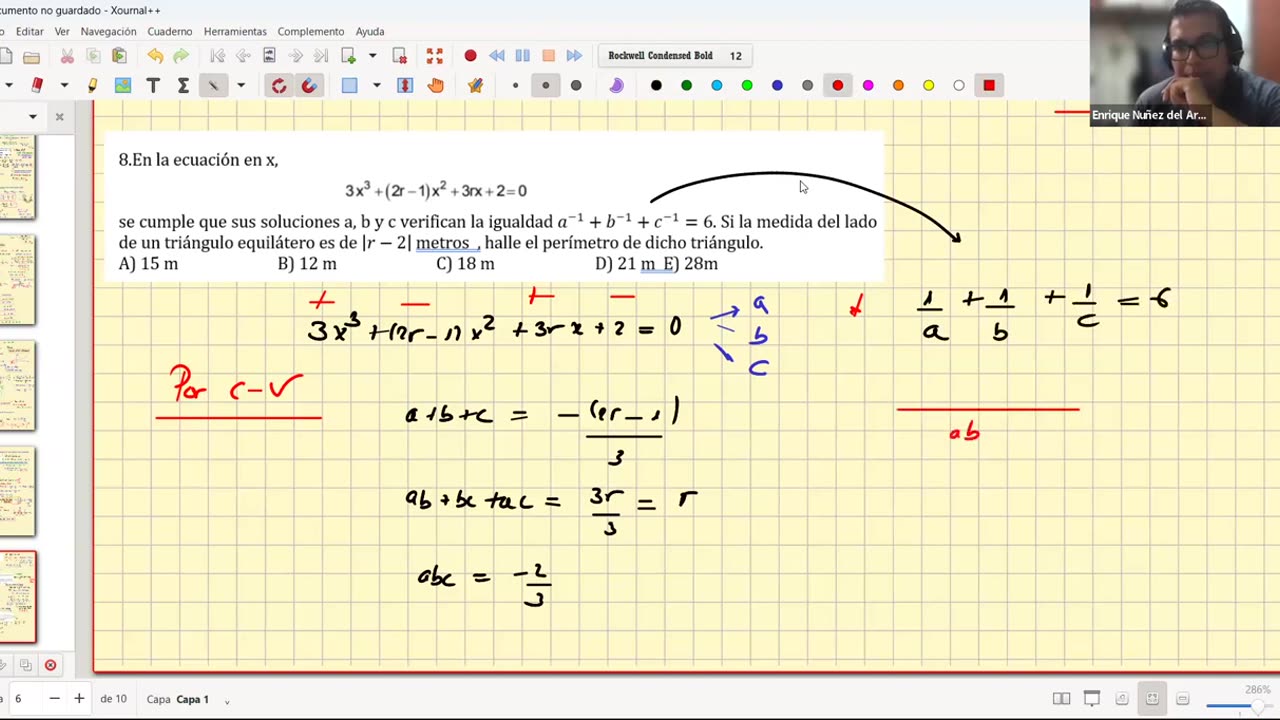 cumento no guardado - Xournal++
Editar Ver Navegación Cuaderno Herramientas Complemento Ayuda
Rockwell Condensed Bold 12
Enrique Nuñez del Ar...
8.En la ecuación en x,
3x³ + (2r − 1)x² + 3rx + 2 = 0
se cumple que sus soluciones a, b y c verifican la igualdad a⁻¹ + b⁻¹ + c⁻¹ = 6. Si la medida del lado
de un triángulo equilátero es de |r − 2| metros , halle el perímetro de dicho triángulo.
A) 15 m B) 12 m C) 18 m D) 21 m E) 28m
+ − + −
3x³ + (2r − 1)x² + 3rx + 2 = 0
a
b
c
1/a + 1/b + 1/c = 6
ab
Por C-V
a+b+c = −(2r − 1)/3
ab + bc + ac = 3r/3 = r
abc = −2/3
6 de 10 Capa Capa 1
286%